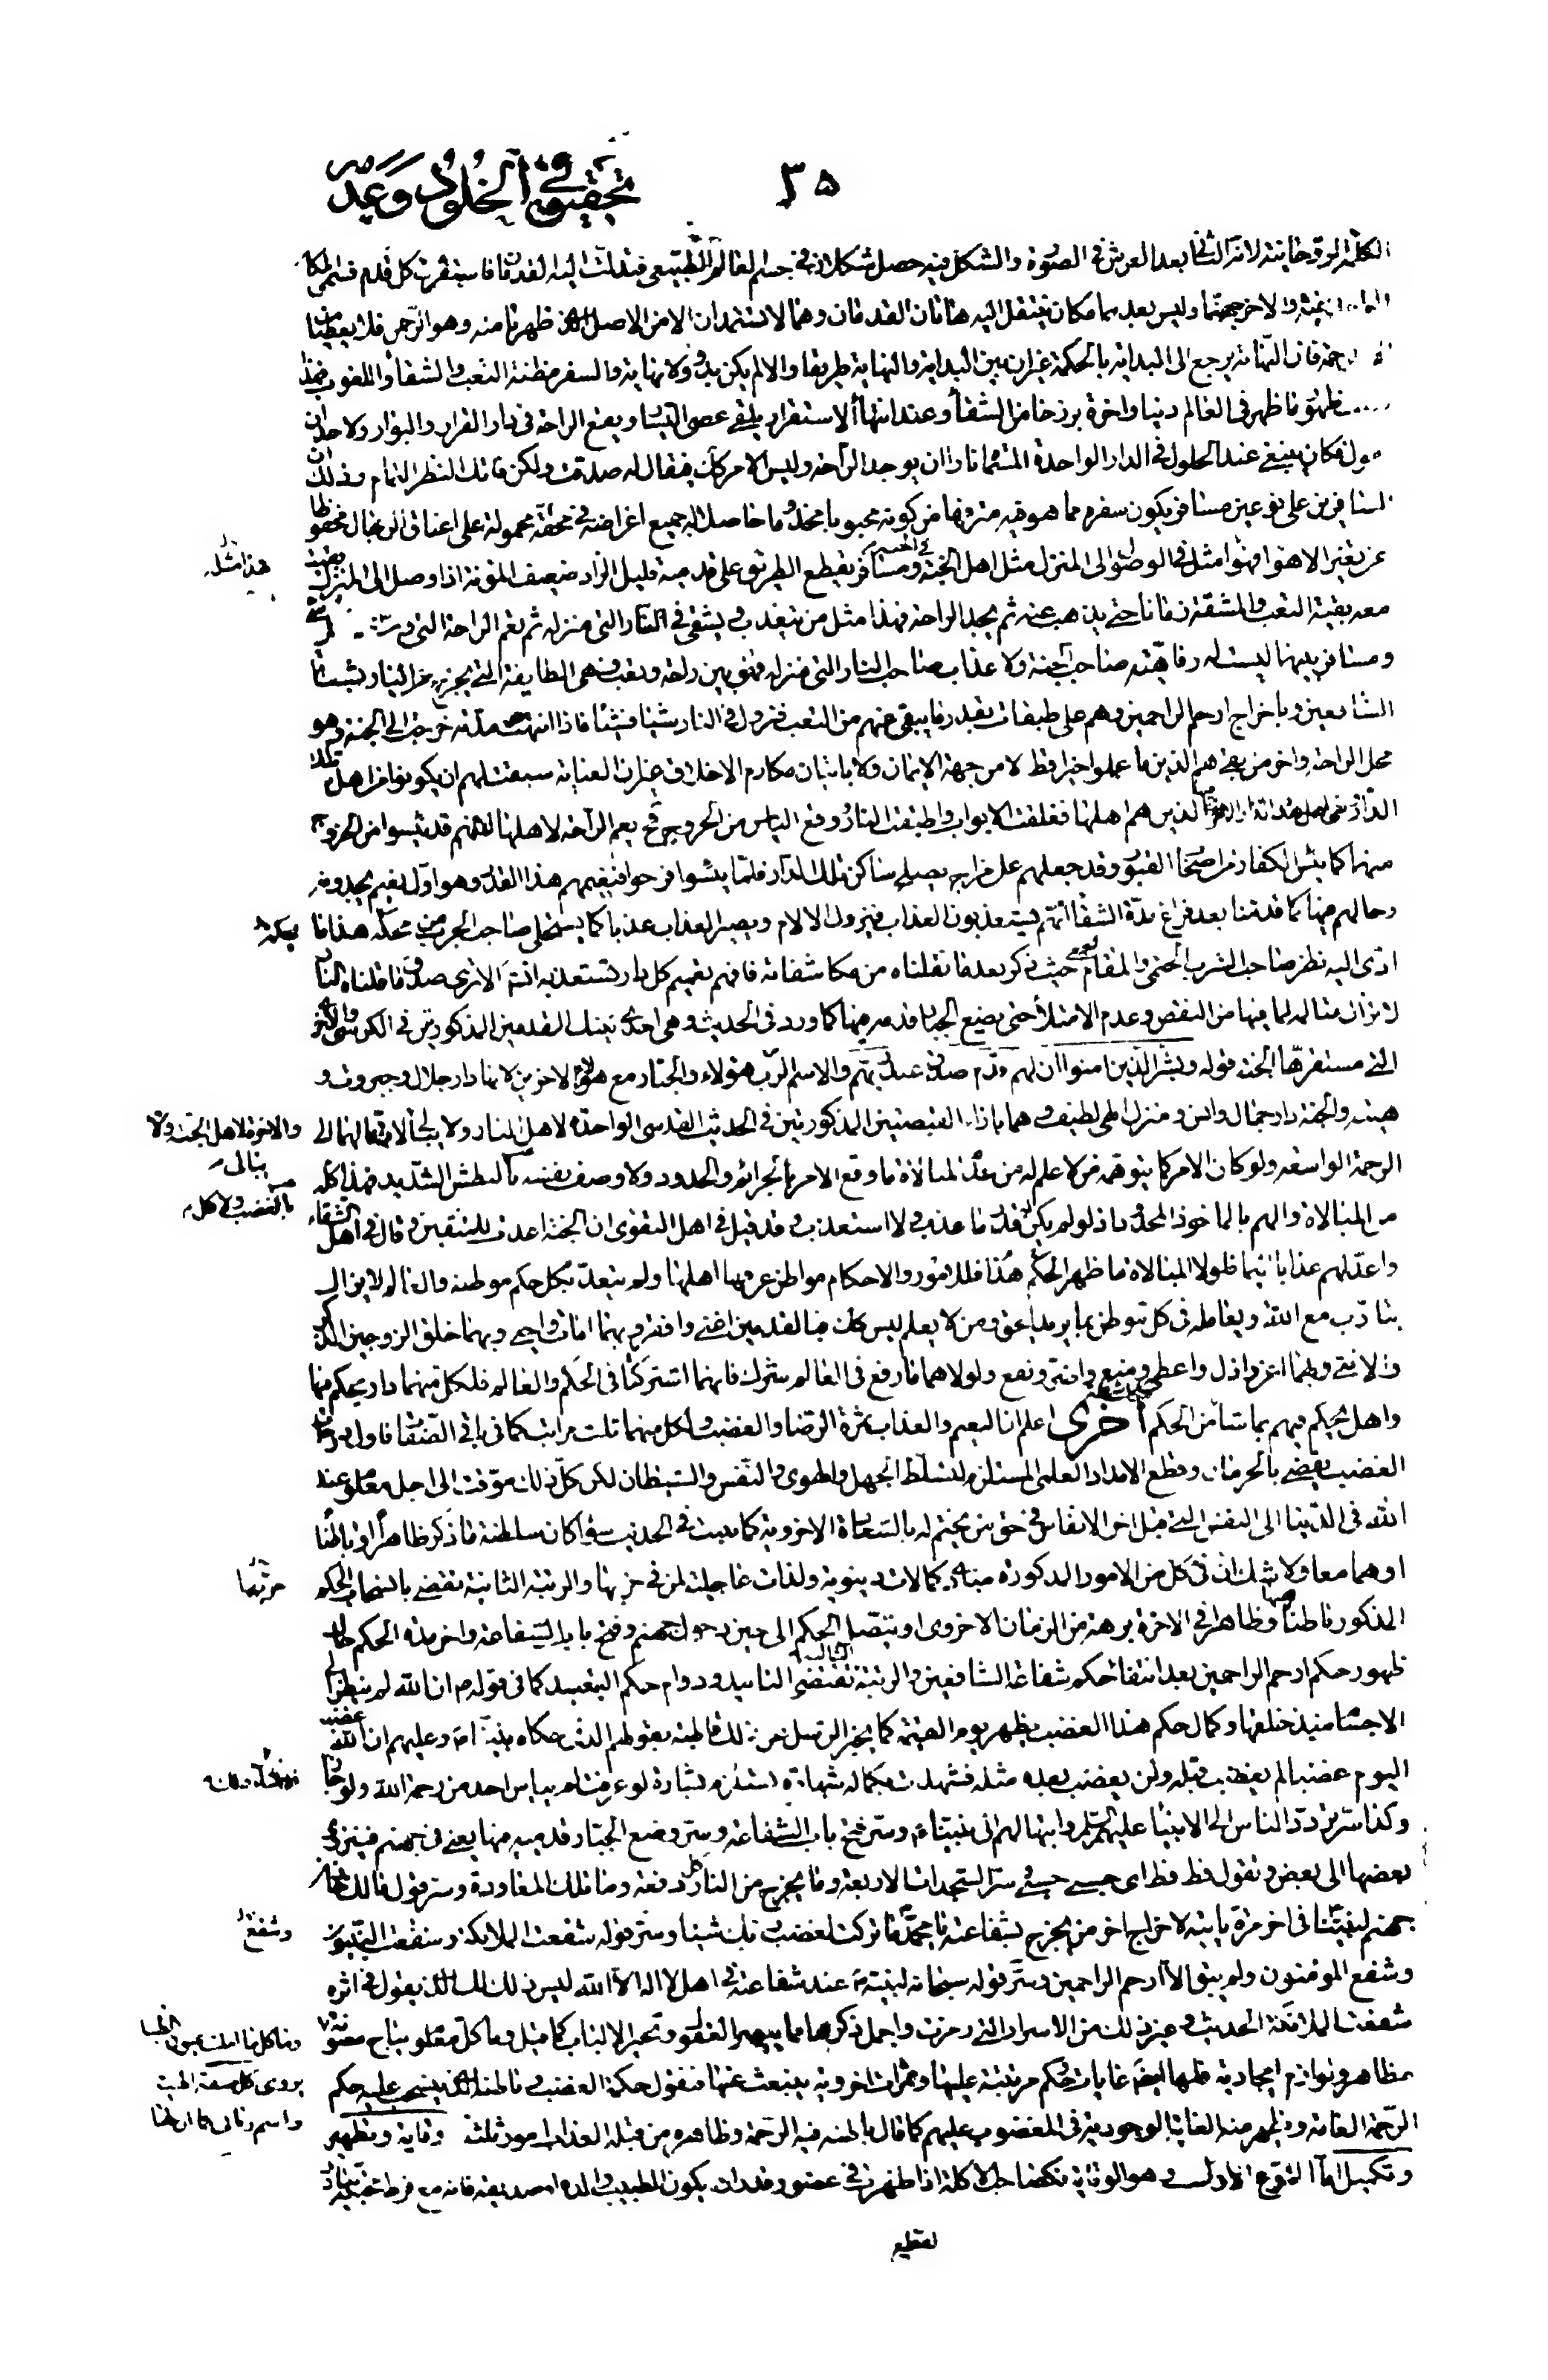 ٣٥
تحقيق في الخلود وعدمه
الكلمة الروحانية لانه الثانى بعد العرش فى الصورة والشكل فيه حصل شكلان فى جسم العالم الطبيعى فتدلت اليه القدمان فاستقرت كل قدم فى مكان
ولا خر جهنما وليس بعدهما مكان ينتقل اليه هاتان القدمان وهما لا يستمدان الا من الاصل الذى ظهرتا منه وهو الرحمن فلا يعطيان
رحمة فان النهاية يرجع الى البداية بالحكمة غير ان بين البداية والنهاية طريقا والا لم يكن بدو ولا نهاية والسفر مظنة التعب والشقا واللغوب فهذا
ظهور ما ظهر فى العالم دنيا واخرة برزخا من الشقا وعند انتهاء الاستقرار يلقى عصى التسيار ويقع الراحة فى دار القرار والبوار ولا حد ان
فكان ينبغى عند الحلول فى الدار الواحدة المسماة نارا ان يوجد الراحة وليس الامر كذلك فيقال له صدقت ولكن فاتك النظر التمام وذلك ان
المسافرين على نوعين مسافر يكون سفره مما هو فيه مترفها من كونه محبوبا مخدوما حاصلا له جميع اغراضه فى محفة محمولة على اعناق الرجال محفوظا
عن تغير الاهوا فهذا مثله فى الوصول الى المنزل مثل اهل الجنة فى الجنة ومسافر يقطع الطريق على قدميه قليل الزاد ضعيف المؤنة اذا وصل الى المنزل بقيت
معه بقية التعب والمشقة زمانا حتى يذهب عنه ثم يجد الراحة فهذا مثل من يتعذب ويشقى فى النار التى منزله ثم يعم الراحة التى
ومسافر بينهما ليست له رفاهية صاحب الجنة ولا عذاب صاحب النار التى منزله فهو بين راحة وتعب وهى الطايفة التى يخرج من النار بشفاعة
الشافعين وباخراج ارحم الراحمين وهم على طبقات بقدر ما يبقى عنهم من التعب فيزول فى النار شيئا فشيئا فاذا انتهت مدته خرجت الى الجنة وهو
محل الراحة واخر من بقى هم الذين ما عملوا خيرا قط لا من جهة الايمان ولا باتيان مكارم الاخلاق غير ان العناية سبقت لهم ان يكونوا من اهل تلك
الدار وبقى اهل هذه الدار الاخرى الذين هم اهلها فغلقت الابواب واطبقت النار ووقع الياس من الخروج فح يعم الراحة لاهلها لانهم قد يئسوا من الخروج
منها كما يئس الكفار من اصحاب القبور وقد جعلهم على مزاج يصلح ساكن تلك الدار فلما يئسوا فرحوا فنعيمهم هذا القدر وهو اول نعيم يجدونه
وحالهم فيها كما قدمنا بعد فراغ مدة الشقا انهم يستعذبون العذاب فيزول الالام ويصير العذاب عذبا كما يستحلى صاحب الجرب من يحكه هذا ما
ادى اليه نظر صاحب الشرب الختمى والمقام حيث ذكر بعد ما نقلناه من مكاشفاته فافهم نعيم كل دار تستعذبه انشا الله الا ترى صدق ما قلناه النار
لا تزال متالمة لما فيها من النقص وعدم الامتلا حتى يضع الجبار قدمه فيها كما ورد فى الحديث وهى احدى تينك القدمين المذكورتين فى الكرسى والاخرى
التى مستقرها الجنة قوله وبشر الذين امنوا ان لهم قدم صدق عند ربهم والاسم الرب مع هؤلاء والجبار مع هؤلاء الاخرين لانها دار جلال وجبروت و
هيبة والجنة دار جمال وانس ومنزل الهى لطيف وهما بازاء القبضتين المذكورتين فى الحديث القدسى الواحدة لاهل النار ولا يبالى لان مآلهما الى
الرحمة الواسعة ولو كان الامر كما يتوهمه من لا علم له من عدم المبالاة ما وقع الامر بالجرائم والحدود ولا وصف نفسه بالبطش الشديد فهذا كله
من المبالاة والهم بالماخوذ المحدود اذ لو لم يكن له قدر ما عذب ولا استعذب وقد قيل فى اهل التقوى ان الجنة اعدت للمتقين وقال فى اهل الشقاء
واعد لهم عذابا اليما فلولا المبالاة ما ظهر الحكم هذا فللامور والاحكام مواطن عرفها اهلها ولم يتعد بكل حكم موطنه والعالم لا يزال
يتادب مع الله ويعامله فى كل موطن بما يريد الحق ومن لا يعلم ليس كذلك فبالقدمين اغنى وافقر وبهما امات واحيى وبهما خلق الزوجين الذكر
والانثى وبهما اعز واذل واعطى ومنع واضر ونفع ولولاهما ما وقع فى العالم شرك فانهما اشتركتا فى الحكم والعالم فلكل منهما دار يحكم فيها
واهل يحكم فيهم بما شا من الحكم اخرى اعلم ان النعيم والعذاب ثمرة الرضا والغضب ولكل منهما ثلث مراتب كما فى باقى الصفات فاول درجات
الغضب يقضى بالحرمان وقطع الامداد العلمى المستلزم لتسلط الجهل والهوى والنفس والشيطان لكن كل ذلك موقت الى اجل معلوم عند
الله فى الدنيا الى النفس التى قبل اخر الانفاس فى حق من يختم له بالسعادة الاخروية كما يثبت فى الحديث سواء كان سلطنة ما ذكر ظاهرا او باطنا
او هما معا ولا شك ان فى كل من الامور المذكورة مبادى كمالات دنيوية ولذات عاجلية لمن فى حزبها والرتبة الثانية تقضى بانسحاب الحكم
المذكور باطنا وظاهرا فى الاخرة برهة من الزمان الاخروى او يتصل الحكم الى حين دخول جهنم وفتح باب الشفاعة واخر مدة الحكم حال
ظهور حكم ارحم الراحمين بعد انتفا حكم شفاعة الشافعين والرتبة الثالثة تقتضى التابيد ودوام حكم التبعيد كما فى قوله ان الله لم ينظر الى
الاجسام منذ خلقها وكمال حكم هذا الغضب يظهر يوم القيمة كما يخبر الرسل عن ذلك قاطبة بقولهم الذى حكاه نبينا وعليهم ان الله غضب
اليوم غضبا لم يغضب قبله ولن يغضب بعده مثله فشهدت بكماله شهادة استلزم بشارة لو عرفت لم يياس احد من رحمة الله ولو جاز
وكذا سر تردد الناس الى الانبيا عليهم السلم وانتهائهم الى نبينا وسر فتح باب الشفاعة وسر وضع الجبار قدميه فيها يعنى فى جهنم فينزوى
بعضها الى بعض وتقول قط قط اى حسبى حسبى وسر السجدات الاربعة وما يخرج من النار كل دفعة وما تلك المعاودة وسر قول مالك خازن
جهنم لنبينا فى اخر مرة ياتيه لاخراج اخر من يخرج بشفاعته يا محمد ما تركت لغضب ربك شيئا وسر قوله شفعت الملائكة وشفعت النبيون
وشفع المومنون ولم يبق الا ارحم الراحمين وسر قوله سبحانه لنبيه عند شفاعته فى اهل لا اله الا الله ليس ذلك لك الذى يقول فى اثره
شفعت الملائكة الحديث وغير ذلك من الاسرار التى رمزت واجمل ذكرها مما يبهر العقول وتحير الالباب كما قيل وما كل معلوم يباح مصونه
بمظاهر ولوازم ايجادية فلها ايضا غايات حكم مرتبة عليها وثمرات اخروية ينبعث عنها فنقول حكم الغضب باطنا الذى ينسحب عليه حكم
الرحمة العامة ويظهر منه الغاية الوجودية فى المغضوب عليهم كما قال باطنه فيه الرحمة وظاهره من قبله العذاب امور ثلثة وقاية وتطهير
وتكميل اما النوع الاول وهو الوقاية فكصاحب الاكلة اذا ظهرت فى عضو وقدرات يكون الطبيب والده او صديقه فانه مع فرط محبته
هذا مثله
يحكه
والاخرة لاهل الجنة ولا
يبالى
بالغضب ولا كل
مرتبها
وشفع
لقطع